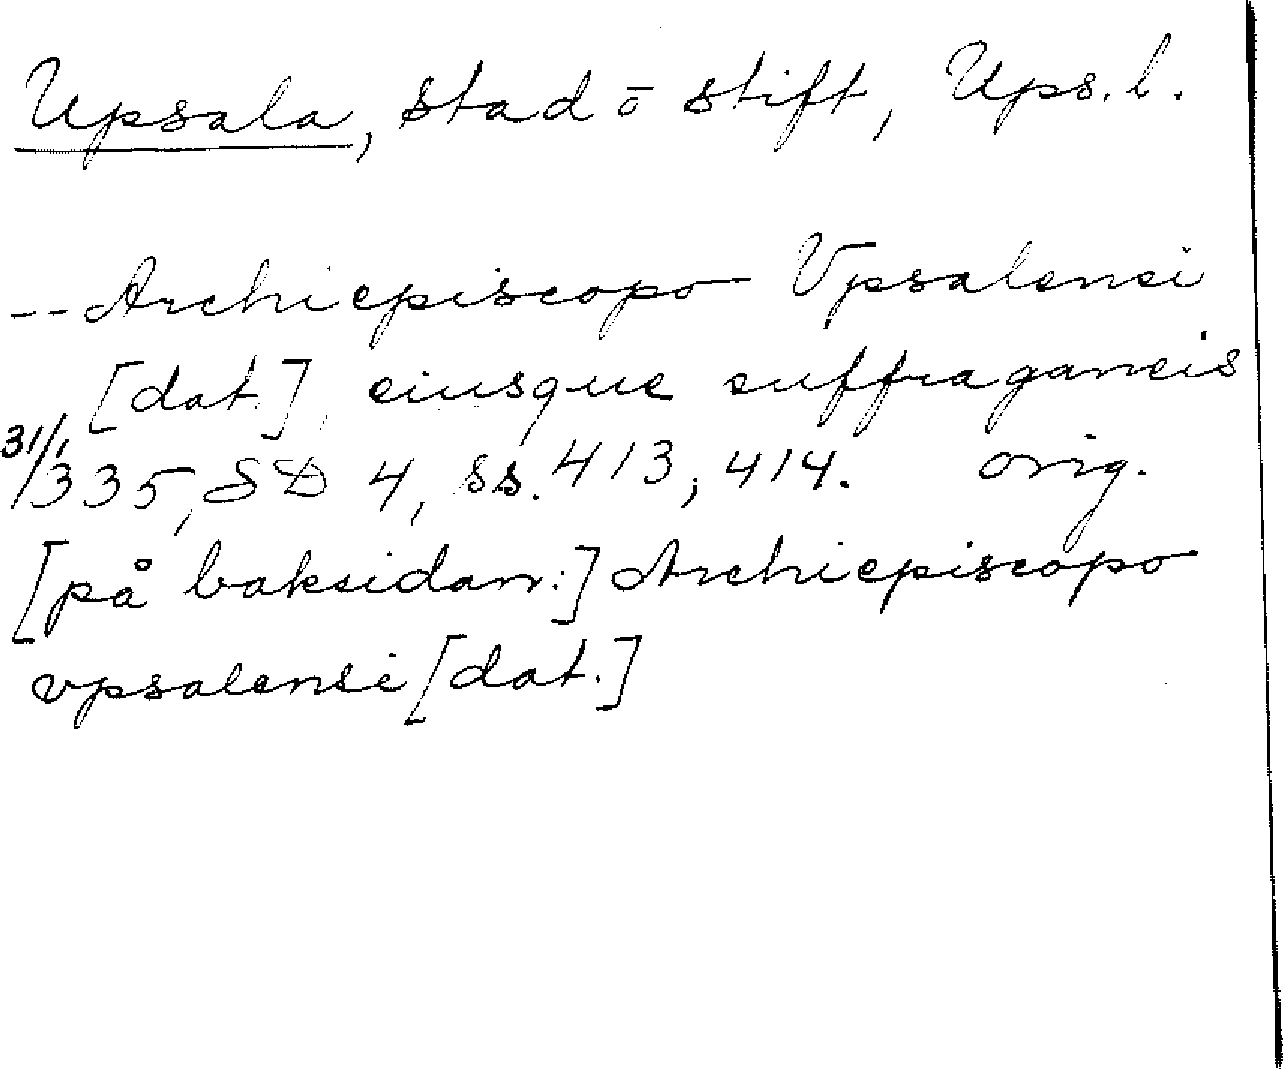 Upsala, stad o stift, Ups. l.
-- Archiepiscopo Vpsalensi
[dat.] eiusque suffraganeis
31/1 335, SD 4, ss. 413, 414. orig.
[på baksidan:] Archiepiscopo
vpsalensi [dat.]